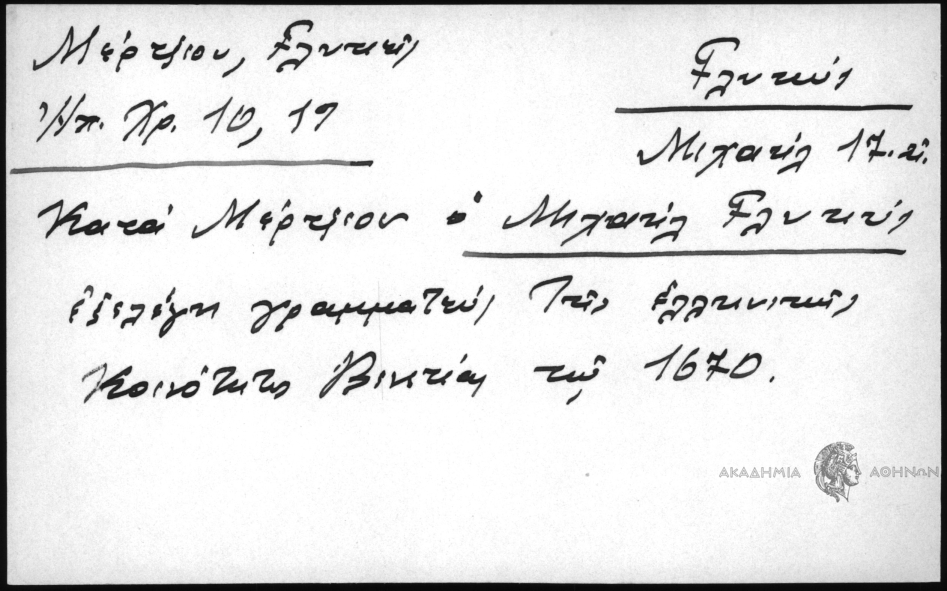 Μέρτζιου, Γλυκεῖς
Ἠπ. Χρ. 10, 19
Γλυκύς
Μιχαήλ 17. αἰ.
Κατά Μέρτζιον ὁ Μιχαήλ Γλυκύς
ἐξελέγη γραμματεύς τῆς ἑλληνικῆς
Κοινότητος Βενετίας τῷ 1670.
ΑΚΑΔΗΜΙΑ ΑΘΗΝΩΝ